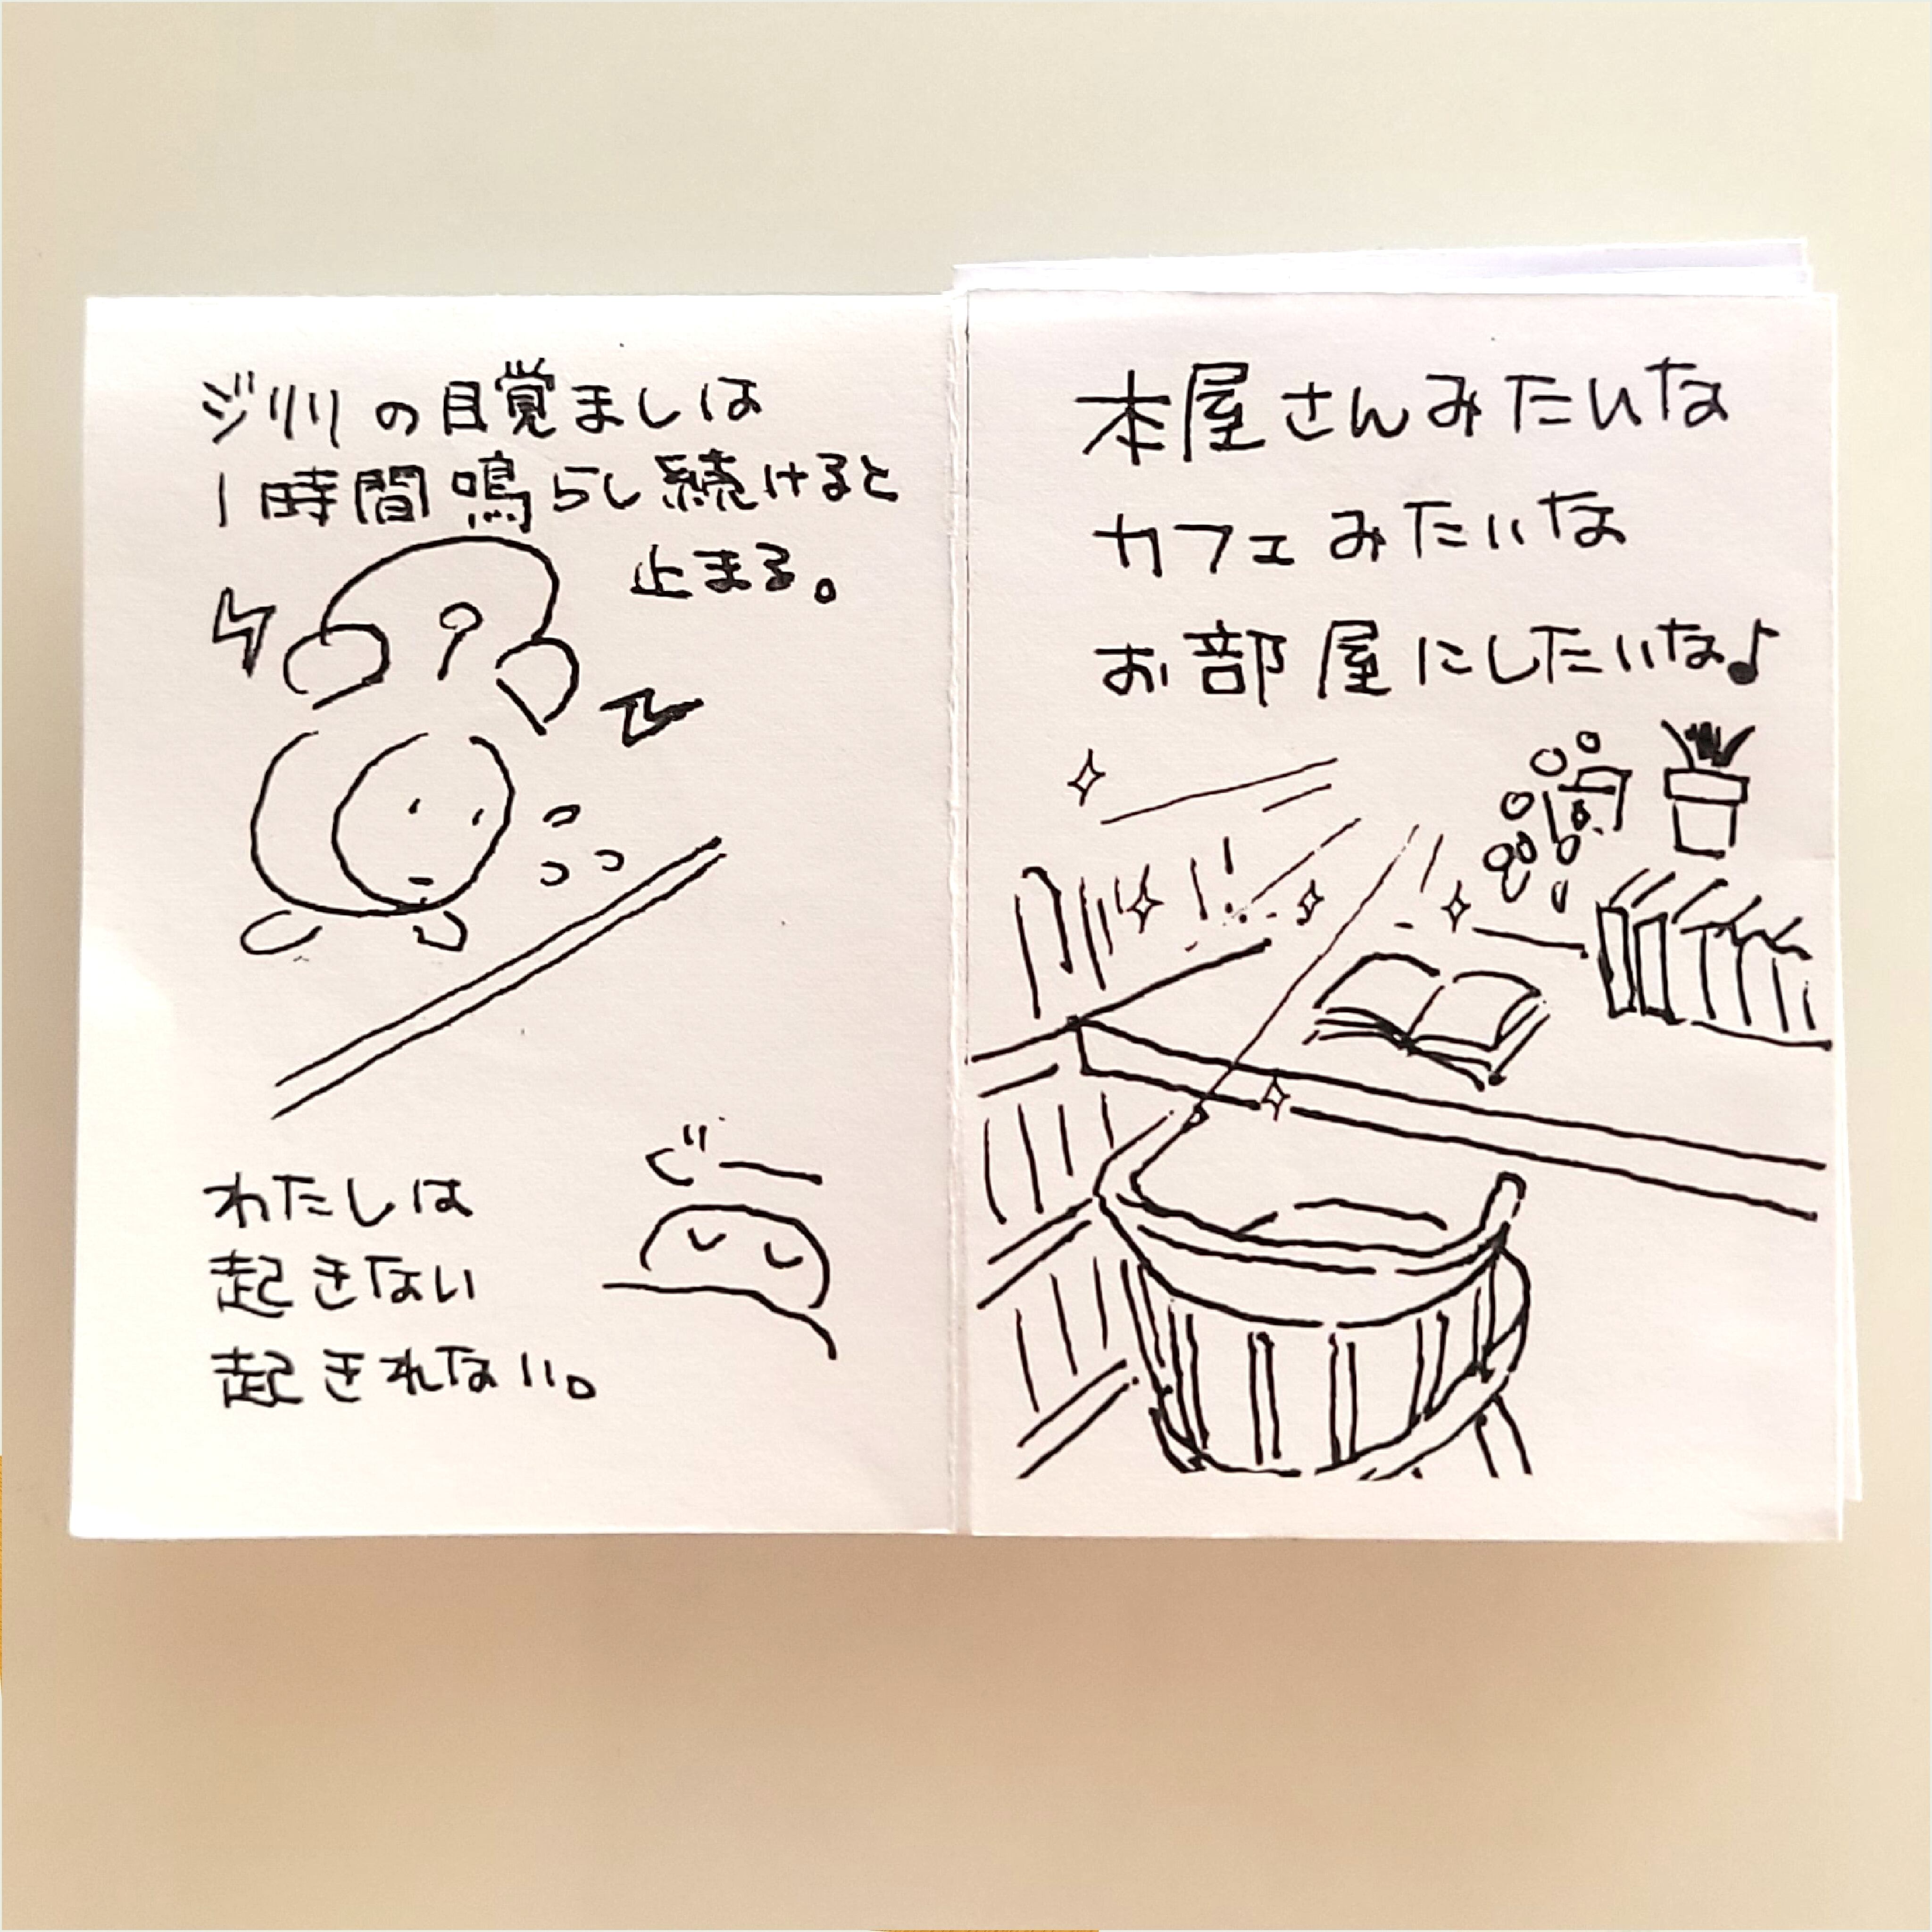 ジリリリの目覚ましは
1時間鳴らし続けると
止まる。
ぐー
わたしは
起きない
起きれない。
本屋さんみたいな
カフェみたいな
お部屋にしたいな♪